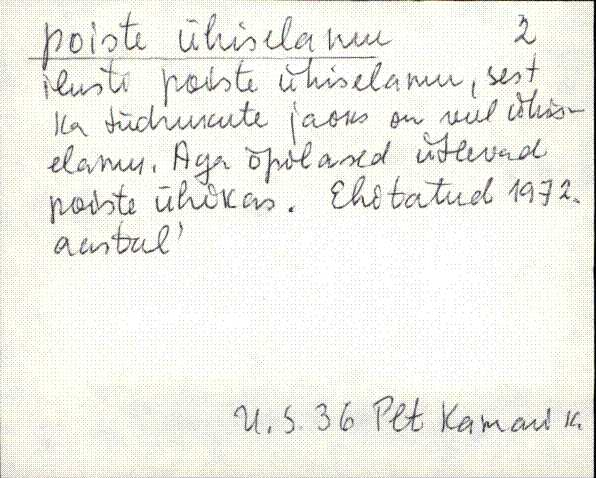 poiste ühiselamu 2
ilusti poiste ühiselamu, sest
ka tüdrukute jaoks on veel ühis-
elamu. Aga õpilased ütlevad
poiste ühikas. Ehitatud 1972.
aastal'
U. S. 36 Plt Kamari k.